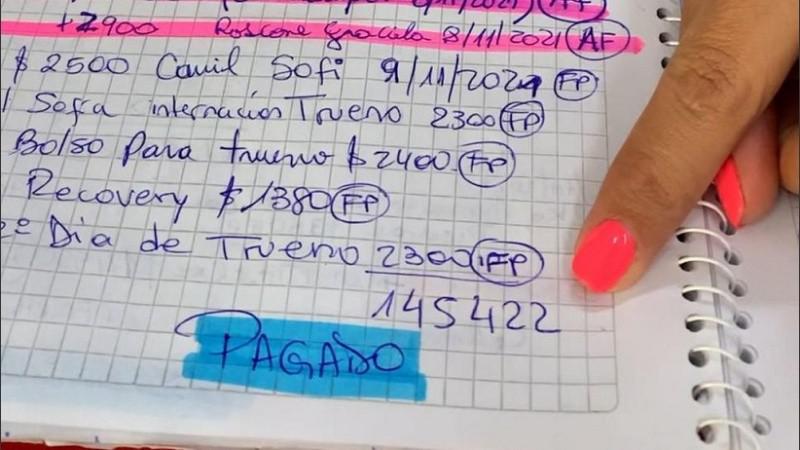 2021) AF
+2900 Roscone Graciela 8/11/2021 AF
$ 2500 Camil Sofi 9/11/2021 FP
Sofia internacion Trueno 2300 FP
Bolso Para trueno $ 2400 FP
Recovery $ 1380 FP
2º Dia de Trueno 2300 FP
145422
PAGADO